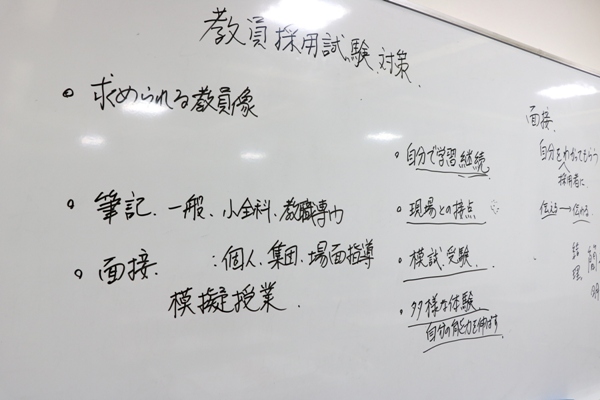 教員採用試験対策
・求められる教員像
・筆記、一般、小全科、教職専門
・面接、:個人、集団、場面指導
模擬授業
・自分で学習継続
・現場との接点
・模試、受験
・多様な体験
自分の能力を伸ばす
面接
自分をわかってもらう
採用者に
伝える→伝わる
・結
簡
理